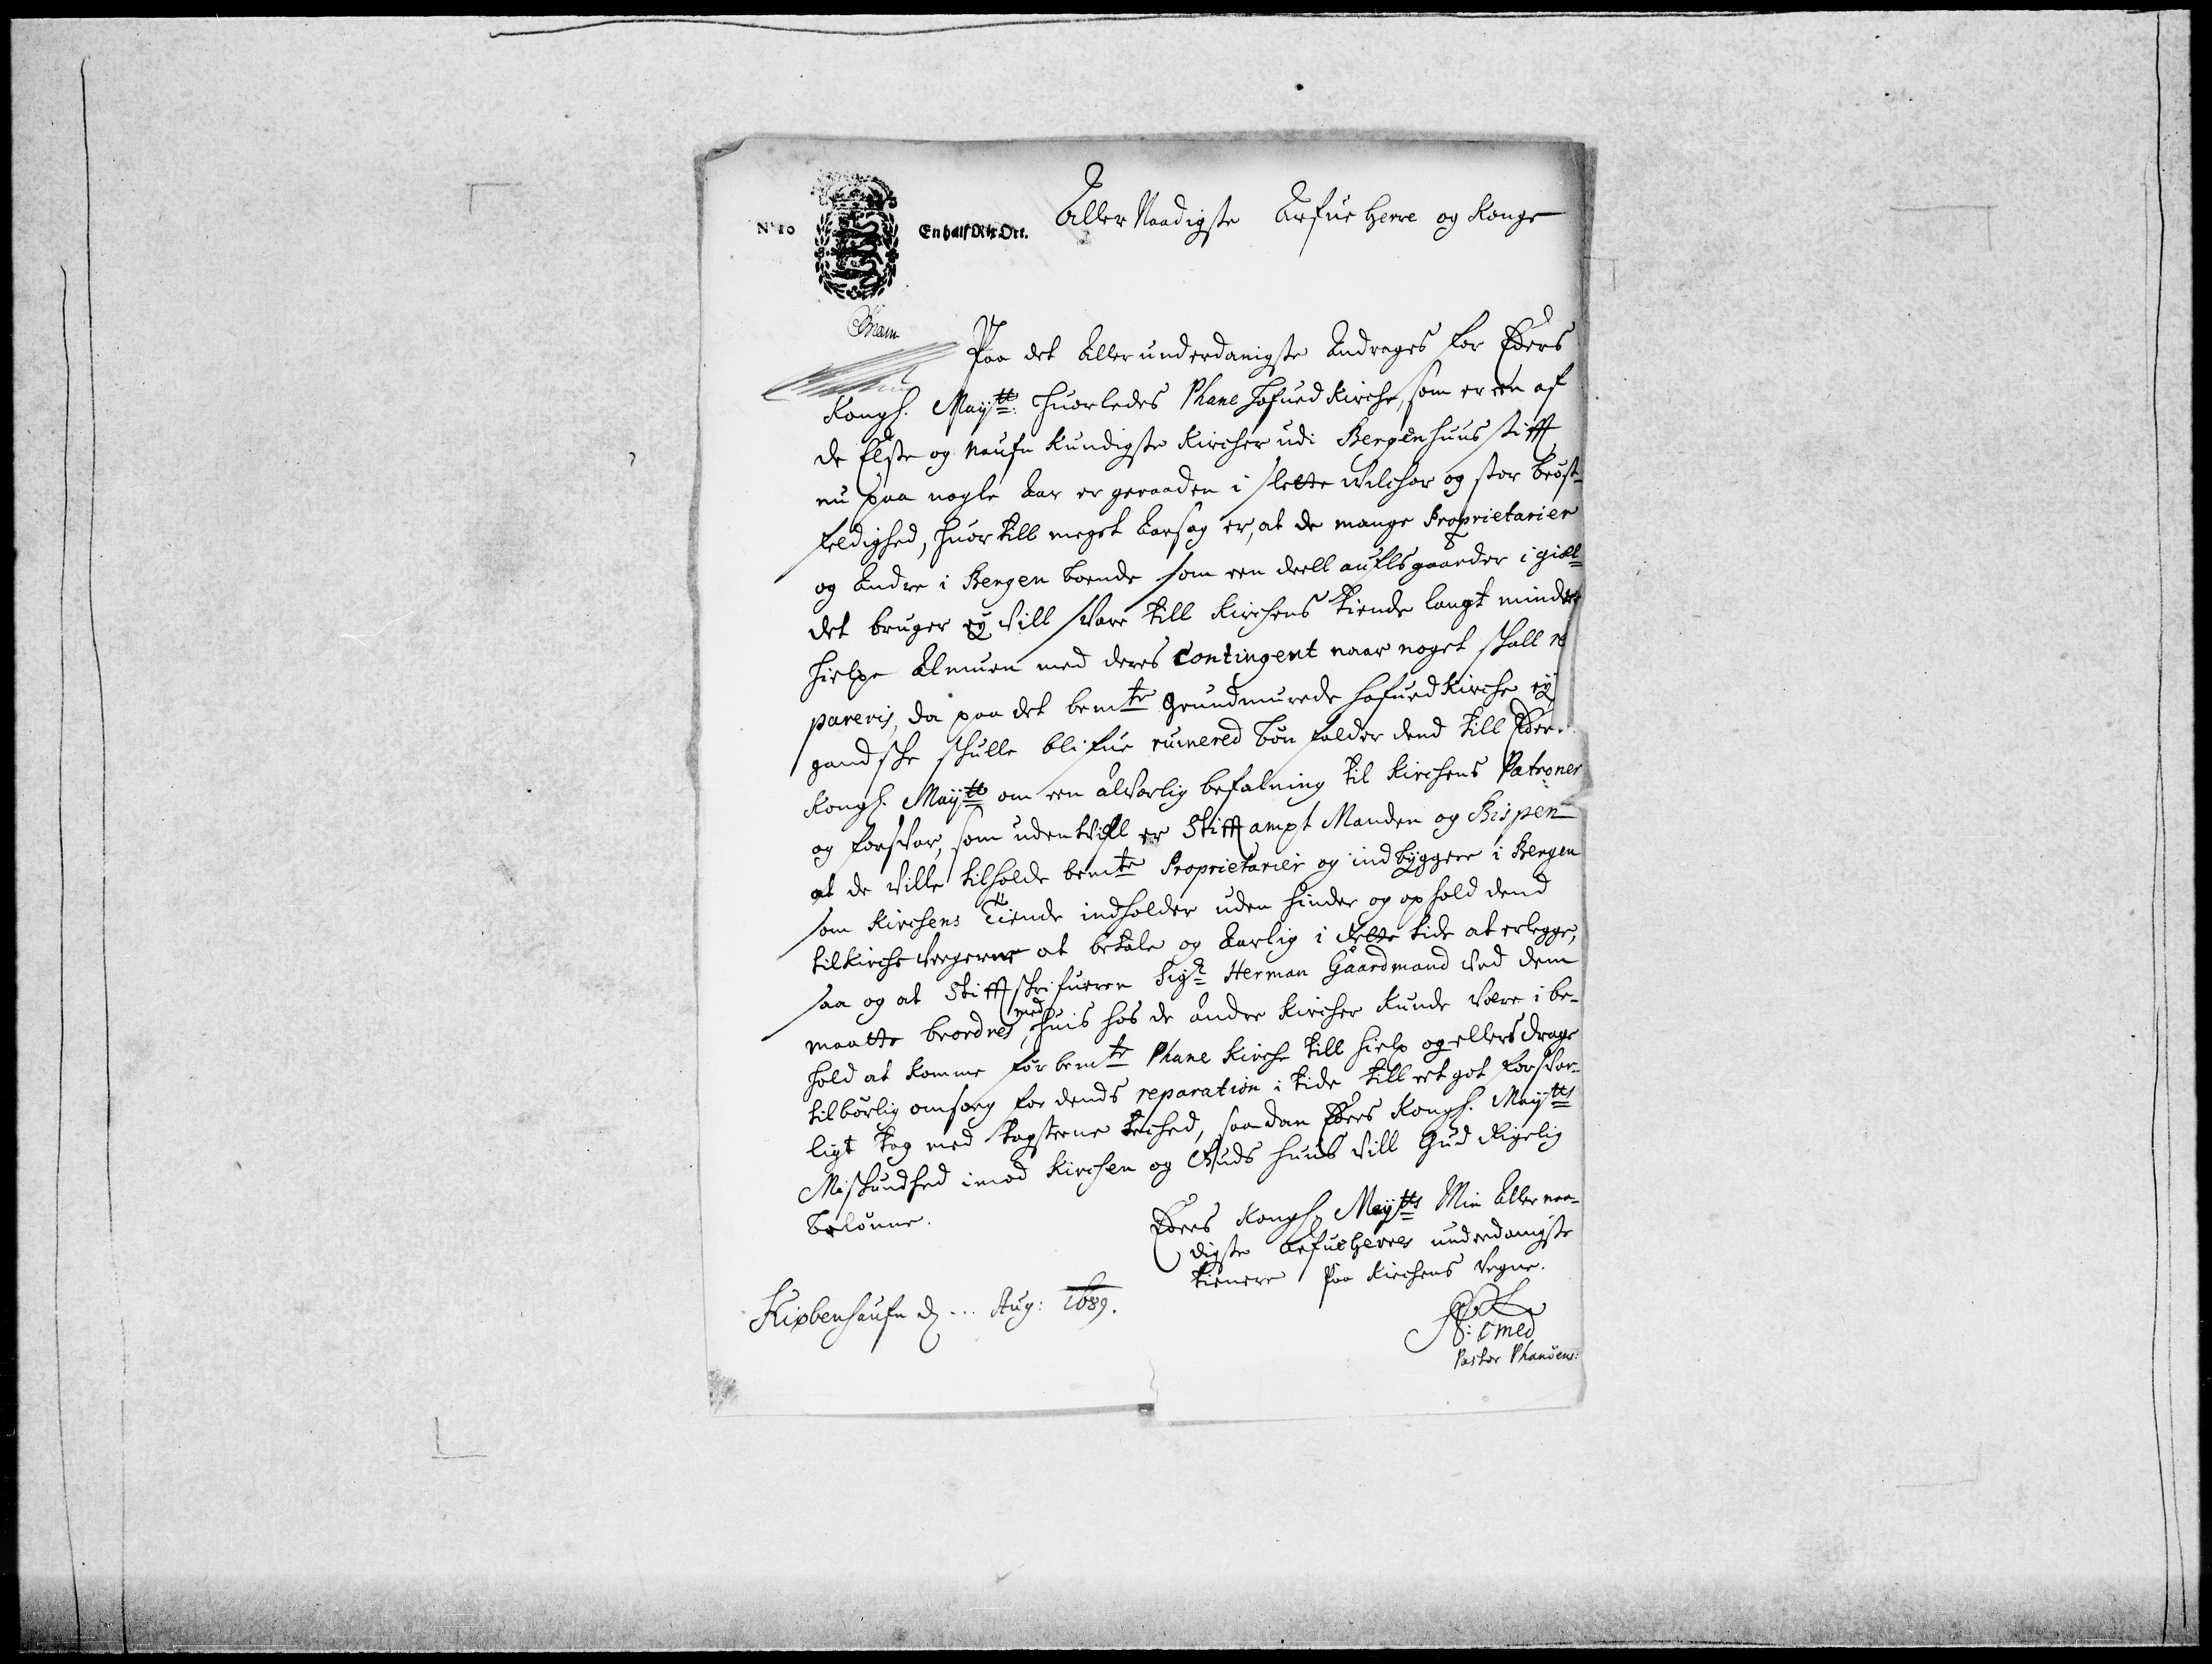 No 10
En half Rix Ort.
Aller Naadigste Arfue Herre og Konge
Paa det Allerunderdanigste Andrages for Eders
Kongl. Maytt: huorledes Phane Hofued Kirche, som er een af
de Elste og Naufn kundigste Kircher udi Bergenhuus stifft
nu paa nogle Aar er geraaden i slette vilchor og stor bröst-
feldighed, huor till meget Aarsag er, at de mange Proprietarier
og Andre i Bergen boende som een deell aufls gaarder i giæl-
det bruger ey vill svare till Kirchens tiende langt mindre
hielpe Almuen med deres Contingent naar noget skall re
pareris, da paa det bemte grundmurede hofuedkirche ey
gandske skulle blifue ruinered bön falder dend till Eders
Kongl. Maytt om een alvorlig befalning til Kirchens Patroner
og forsvar, som uden tvifl er Stifft ampt Manden og Bispen
at de ville tilholde bemte Proprietarier og indbyggere i Bergen
som Kirchens Tiende indholder uden hinder og ophold dend
til Kirche vergerne at betale og Aarlig i rette tide at erlegge,
saa og at Stifft skrifueren Sigr Herman Gaardmand ved dem
maatte beordres, med huis hos de andre Kircher kunde være i be-
hold at komme for bemte Phane Kirche till hielp og ellers drage
tilbörlig omsorg for dends reparation i tide till et got forsvar-
ligt tag med tagsteene teched, saadan Eders Kongl. Maytts
Miskundhed imod Kirchen og Guds huus vill Gud Rigelig
belönne.
Eders Kongl. Maytts Min Aller naa-
digste arfue Herres underdanigste
tienere Paa Kirchens Vegne.
Kiøbenhaufn d ... Aug: 1689.
Pastor Phanöens: